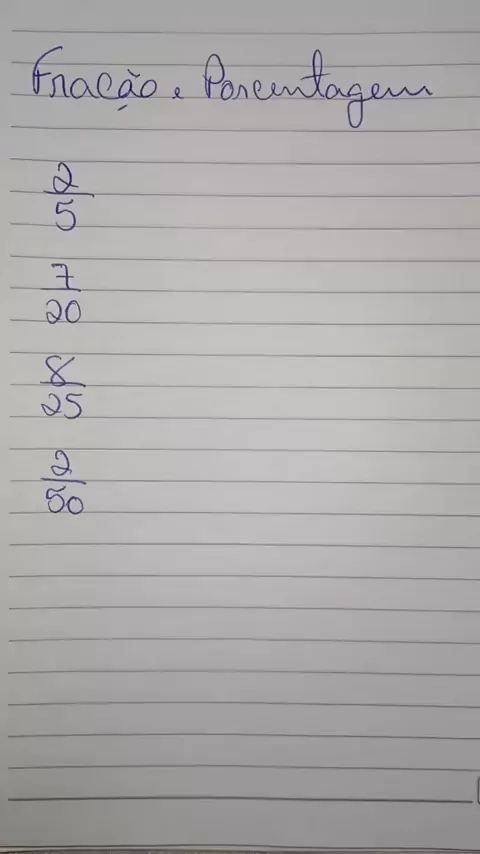 Fração e Porcentagem
2/5
7/20
8/25
2/50